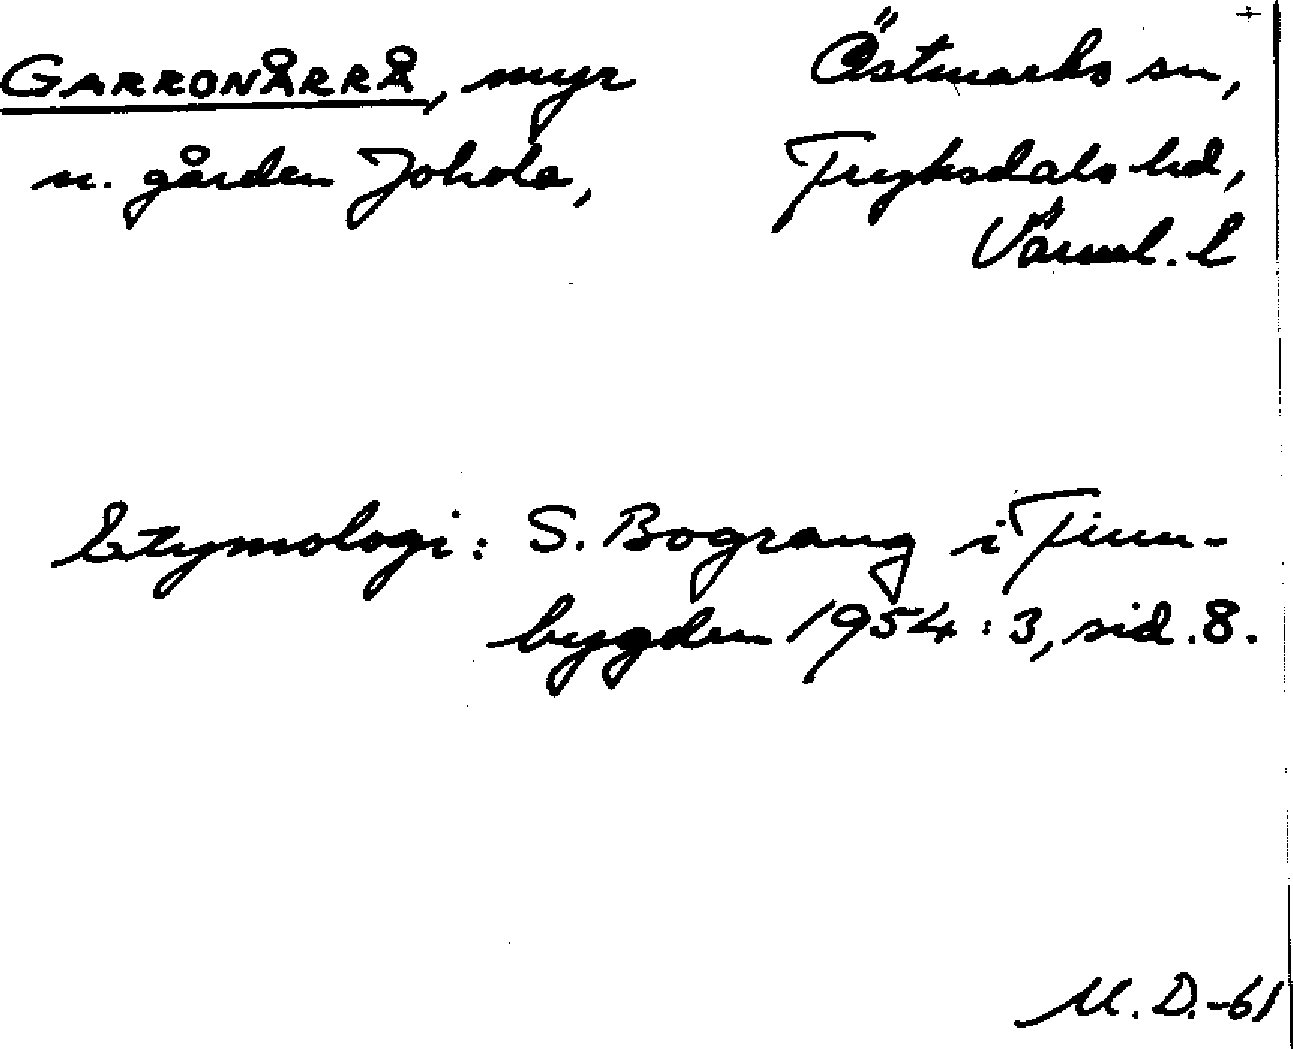 GARRONÅRRÅ, myr
n. gården Johola,
Östmarks sn,
Fryksdals hd,
Värml. l
Etymologi: S. Bograng i Finn-
bygden 1954:3, sid. 8.
M. D. -61